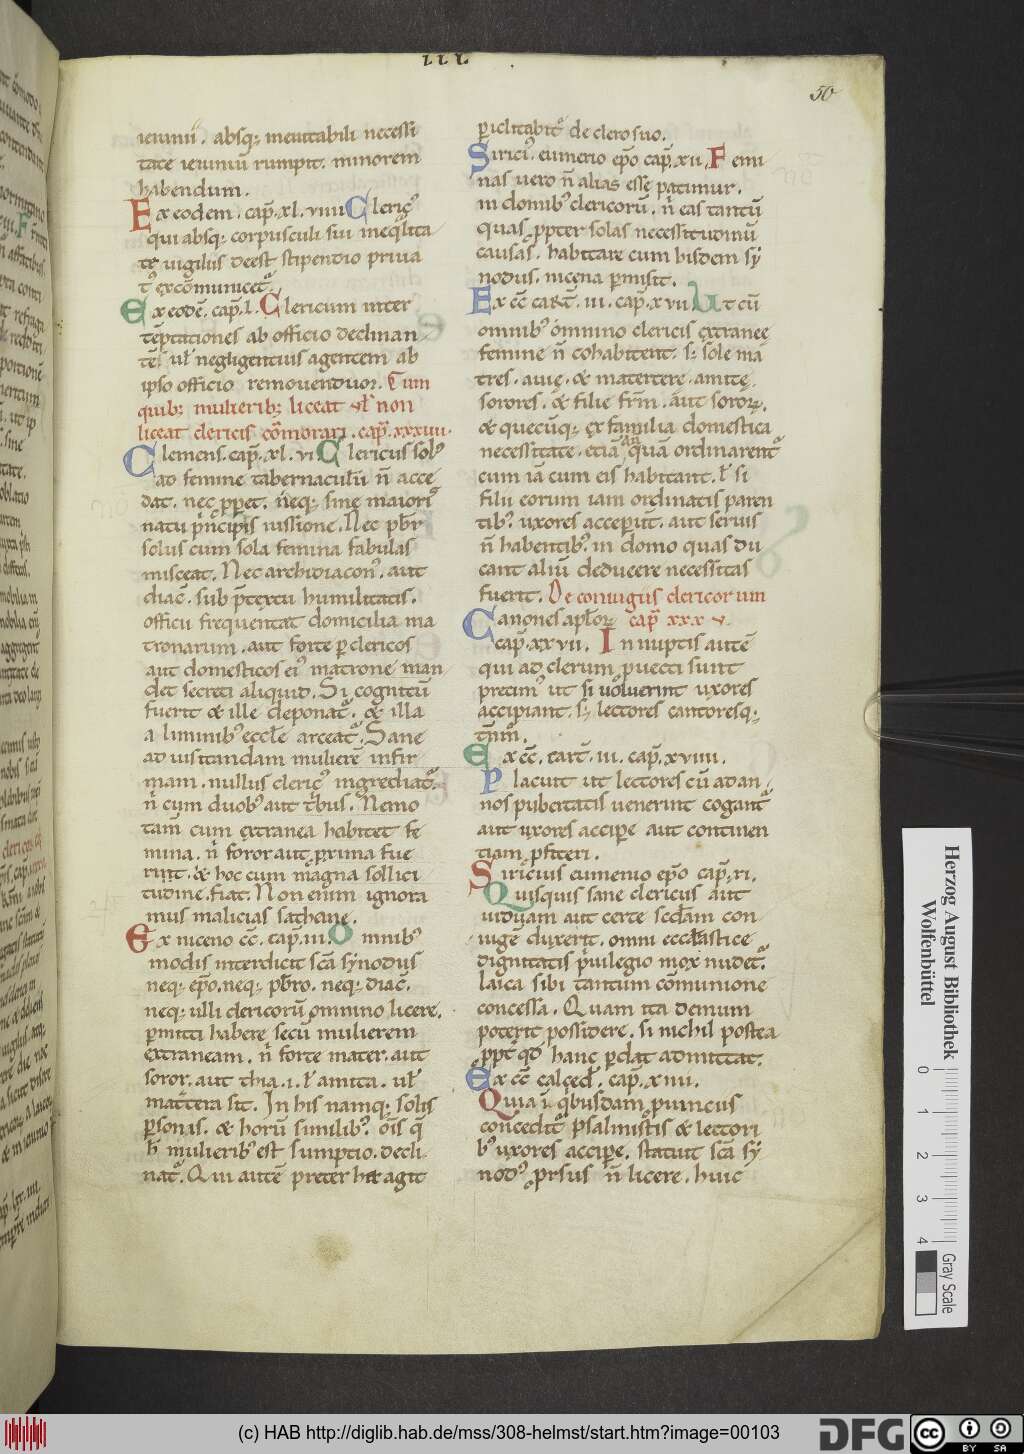 III.
50
ieiunii. absq; ineuitabili necessi
tate ieiuniū rumpit. minorem
habendum.
Ex eodem. cap̄. xl. viiii Cleric᷒
qui absq; corpusculi sui ineq̄lita
te uigilus deest stipendio priua
t᷒ excōmunicet᷒.
Ex eodē. cap̄. l. Clericum inter
tēptationes ab officio declinan
tē ul̄ negligentius agentem ab
ipso officio remouendum. Cum
quib; mulierib; liceat vl̄ non
liceat clericis cōmorari. cap̄. xxxiiii.
Clemens. cap̄. xl. vi Clericus sol᷒
ad femine tabernaculū n̄ acce
dat. nec ꝓpet. neq; sine maiori᷒
natu p̄ncipis iussione. Nec pb̄r
solus cum sola femina fabulas
misceat. Nec archidiacon᷒. aut
diac̄. sub p̄textu humilitatis.
officii frequentat domicilia ma
tronarum. aut forte ꝑ clericos
aut domesticos ei᷒ matrone man
det secreti aliquid. Si cognitū
fuerit & ille deponat᷒. & illa
a liminib᷒ eccl̄e arceat᷒. Sane
ad uisitandam mulierē infir
mam. nullus cleric᷒ ingrediat᷒.
n̄ cum duob᷒ aut trib᷒. Nemo
tam̄ cum extranea habitet fe
mina. n̄ soror aut ꝓxima fue
rint. & hoc cum magna sollici
tudine. fiat. Non enim ignora
mus malicias sathane.
Ex niceno cc̄. cap̄. iii. Omnib᷒
modis interdicit sc̄a synodus
neq; ep̄o. neq; pb̄ro. neq; diac̄.
neq; ulli clericorū omnino licere.
ꝑmitti habere secū mulierem
extraneam. n̄ forte mater. aut
soror. aut thia. i. l̄ amita. ul̄
matt̄era sit. In his namq; solis
ꝑsonis. & horū similib᷒. ōis q̄
h̄ mulierib᷒ est sumptio. decli
nat᷒. Qui autē preter hec agit
ꝑiclitabit᷒ de clero suo.
Sirici᷒. eumerio ep̄o cap̄. xii. Femi
nas uero n̄ alias esse patimur.
in domib᷒ clericorū. n̄ eas tantū
quas ꝓpter solas necessitudinū
causas. habitare cum hisdem sy
nodus. nicena ꝑmisit.
Ex cc̄ cart̄. iii. cap̄. xvii Ut cū
omnib᷒ omnino clericis extranee
femine n̄ cohabitent. s; sole ma
tres. auie. & matertere. amite.
sorores. & filie fr̄m. aut soroꝝ.
& quecūq; ex familia domestica
necessitate. etiā anquā ordinarent᷒
cum iā cum eis habitant. l̄ si
filii eorum iam ordinatis paren
tib᷒. uxores acceꝑūt. aut seruis
n̄ habentib᷒. in domo quas du
cant aliū deducere necessitas
fuerit. De coniugiis clericorum
Canones apl̄oꝝ cap̄ xxxv.
cap̄. xxvii. In nuptis autē
qui ad clerum ꝓuecti sunt
precim᷒ ut si uoluerint uxores
accipiant. s; lectores cantoresq;
tm̄m.
Ex cc̄. cart̄. iii. cap̄. xviiii.
Placuit ut lectores cū ad an
nos pubertatis uenerint cogant᷒
aut uxores acciꝑe aut continen
tiam ꝓfiteri.
Siricius eumenio ep̄o cap̄. xi.
Quisquis sane clericus aut
uiduam aut certe scd̄am con
iugē duxerit. omni eccl̄astice
dignitatis p̄uilegio mox nudet᷒.
Laica sibi tantum cōmunione
concessa. Quam ita demum
poterit possidere. si nichil postea
ꝓpt᷒ qd̄ hanc ꝑdat admittat.
Ex cc̄ calced̄. cap̄. xiiii.
Quia ī q̄busdam ꝓuinciis
concedit᷒ psalmistis & lectori
b᷒ uxores acciꝑe. statuit sc̄a sy
nod᷒ ꝓrsus n̄ licere. huic
Herzog August Bibliothek
Wolfenbüttel
0 1 2 3 4
Gray Scale
(c) HAB http://diglib.hab.de/mss/308-helmst/start.htm?image=00103
DFG
cc BY SA